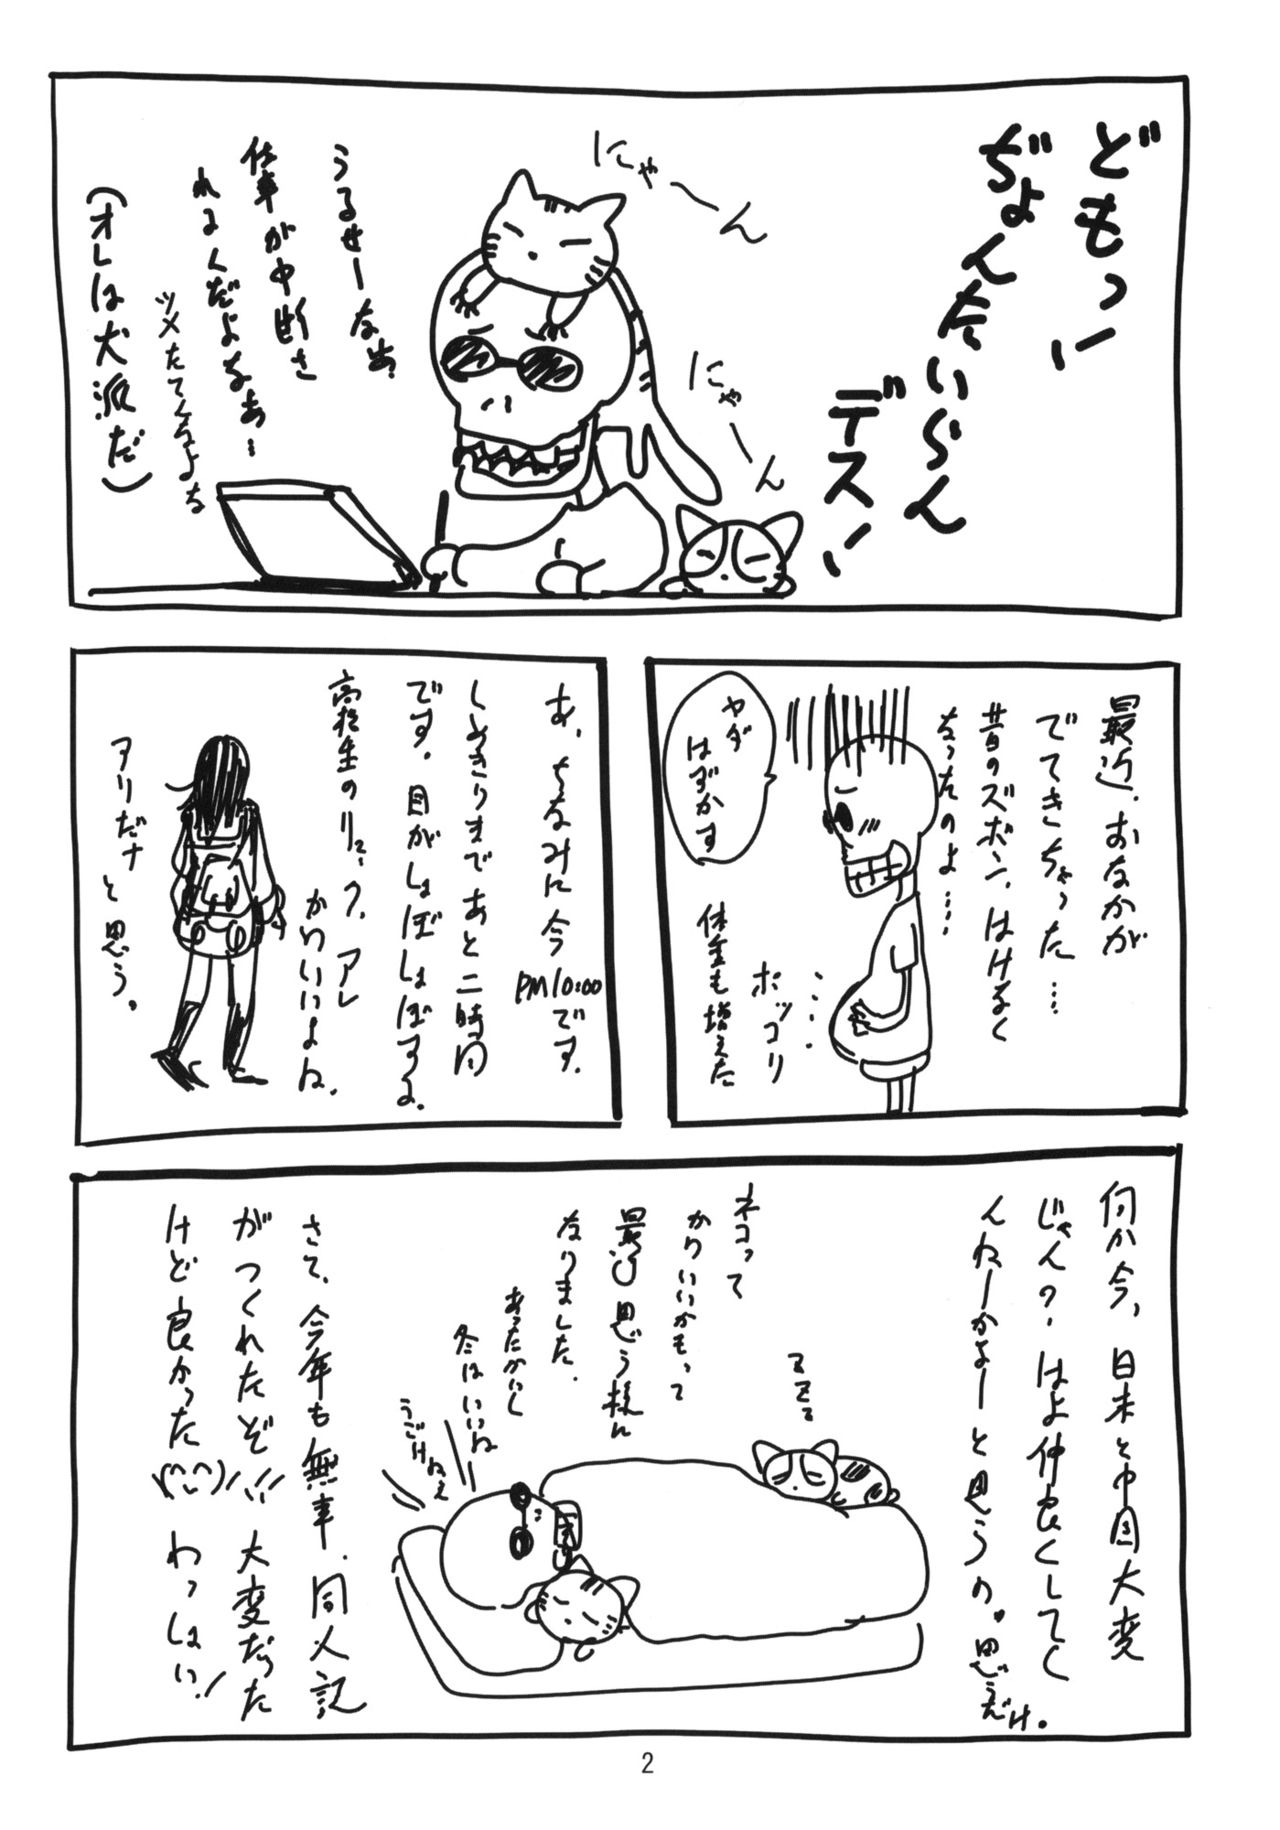 どもっ!
ぢょんたいらん
デス!
にゃーん
にゃーん
うるせーなぁ
仕事が中断さ
れるんだよなぁ…
ツメたてんなよな
(オレは犬派だ)
最近、おなかが
でてきちゃった…
昔のズボン、はけなく
なったのよ……
ヤダ
はずかす
ポッコリ
体重も増えた
あ、ちなみに今
PM10:00です。
しめきりまであと二時間
です。目がしょぼしょぼする。
高校生のリュック、アレ
かわいいよね。
アリだナ
と思う。
何か今、日本と中国大変
じゃん?はよ仲良くしてく
んねーかなーと思うの。思うだけ。
ネコって
かわいいかもって
最近思う様に
なりました。
zzz
あったかいし
冬はいいねー
うごけねえ
さて、今年も無事、同人誌
がつくれたぞ!! 大変だった
けど良かった\(^^)/ わっしょい!
2